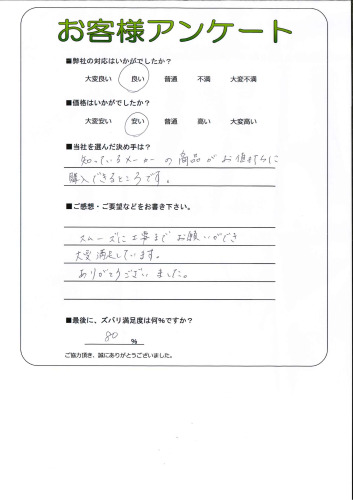 お客様アンケート
■弊社の対応はいかがでしたか？
大変良い 良い 普通 不満 大変不満
■価格はいかがでしたか？
大変安い 安い 普通 高い 大変高い
■当社を選んだ決め手は？
知っているメーカーの商品がお値打ちに
購入できるところです。
■ご感想・ご要望などをお書き下さい。
スムーズに工事までお願いができ
大変満足しています。
ありがとうございました。
■最後に、ズバリ満足度は何%ですか？
80 %
ご協力頂き、誠にありがとうございました。